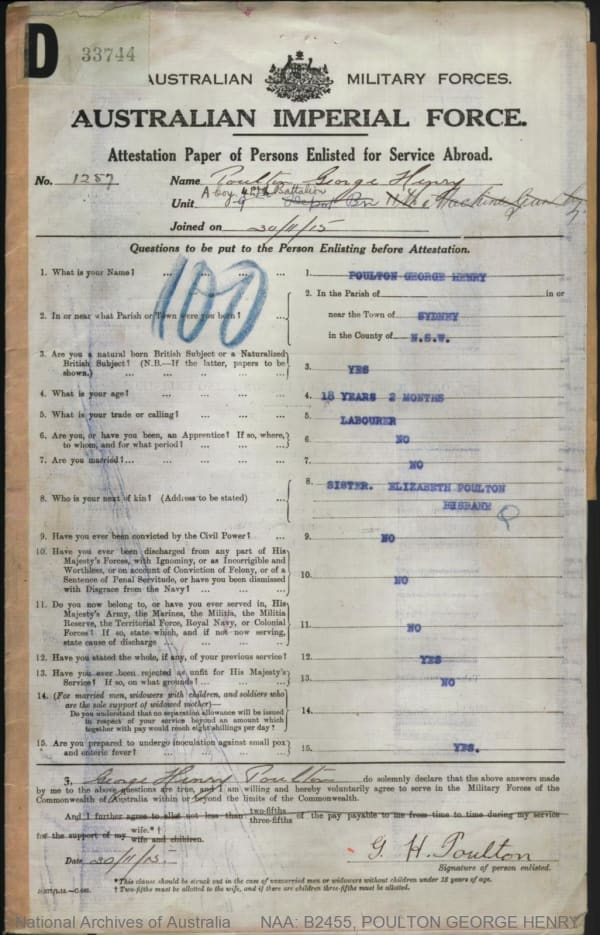 D
33744
AUSTRALIAN MILITARY FORCES.
AUSTRALIAN IMPERIAL FORCE.
Attestation Paper of Persons Enlisted for Service Abroad.
No. 1257 Name Poulton George Henry
A Coy 47th Battalion
Unit 9 Depot Bn 11th Machine Gun Coy
Joined on 30/11/15
Questions to be put to the Person Enlisting before Attestation.
100
1. What is your Name? ... ... ... ... 1. POULTON GEORGE HENRY
2. In or near what Parish or Town were you born? ... 2. In the Parish of in or
near the Town of SYDNEY
in the County of N.S.W.
3. Are you a natural born British Subject or a Naturalized
British Subject? (N.B.—If the latter, papers to be
shown.) ... ... ... ... 3. YES
4. What is your age? ... ... ... 4. 18 YEARS 2 MONTHS
5. What is your trade or calling? ... ... ... 5. LABOURER
6. Are you, or have you been, an Apprentice? If so, where,
to whom, and for what period? ... ... ... 6. NO
7. Are you married? ... ... ... ... 7. NO
8. Who is your next of kin? (Address to be stated) ... 8. SISTER. ELIZABETH POULTON
BRISBANE
9. Have you ever been convicted by the Civil Power? ... 9. NO
10. Have you ever been discharged from any part of His
Majesty's Forces, with Ignominy, or as Incorrigible and
Worthless, or on account of Conviction of Felony, or of a
Sentence of Penal Servitude, or have you been dismissed
with Disgrace from the Navy? ... ... ... 10. NO
11. Do you now belong to, or have you ever served in, His
Majesty's Army, the Marines, the Militia, the Militia
Reserve, the Territorial Force, Royal Navy, or Colonial
Forces? If so, state which, and if not now serving,
state cause of discharge ... ... ... 11. NO
12. Have you stated the whole, if any, of your previous service? 12. YES
13. Have you ever been rejected as unfit for His Majesty's
Service? If so, on what grounds? ... ... ... 13. NO
14. (For married men, widowers with children, and soldiers who
are the sole support of widowed mother)—
Do you understand that no separation allowance will be issued
in respect of your service beyond an amount which
together with pay would reach eight shillings per day? 14.
15. Are you prepared to undergo inoculation against small pox
and enteric fever? ... ... ... ... 15. YES.
I, George Henry Poulton do solemnly declare that the above answers made
by me to the above questions are true, and I am willing and hereby voluntarily agree to serve in the Military Forces of the
Commonwealth of Australia within or beyond the limits of the Commonwealth.
And I further agree to allot not less than two-fifths three-fifths of the pay payable to me from time to time during my service
for the support of my wife.*† wife and children.
Date 30/11/15. G. H. Poulton
Signature of person enlisted.
* This clause should be struck out in the case of unmarried men or widowers without children under 18 years of age.
† Two-fifths must be allotted to the wife, and if there are children three-fifths must be allotted.
National Archives of Australia NAA: B2455, POULTON GEORGE HENRY